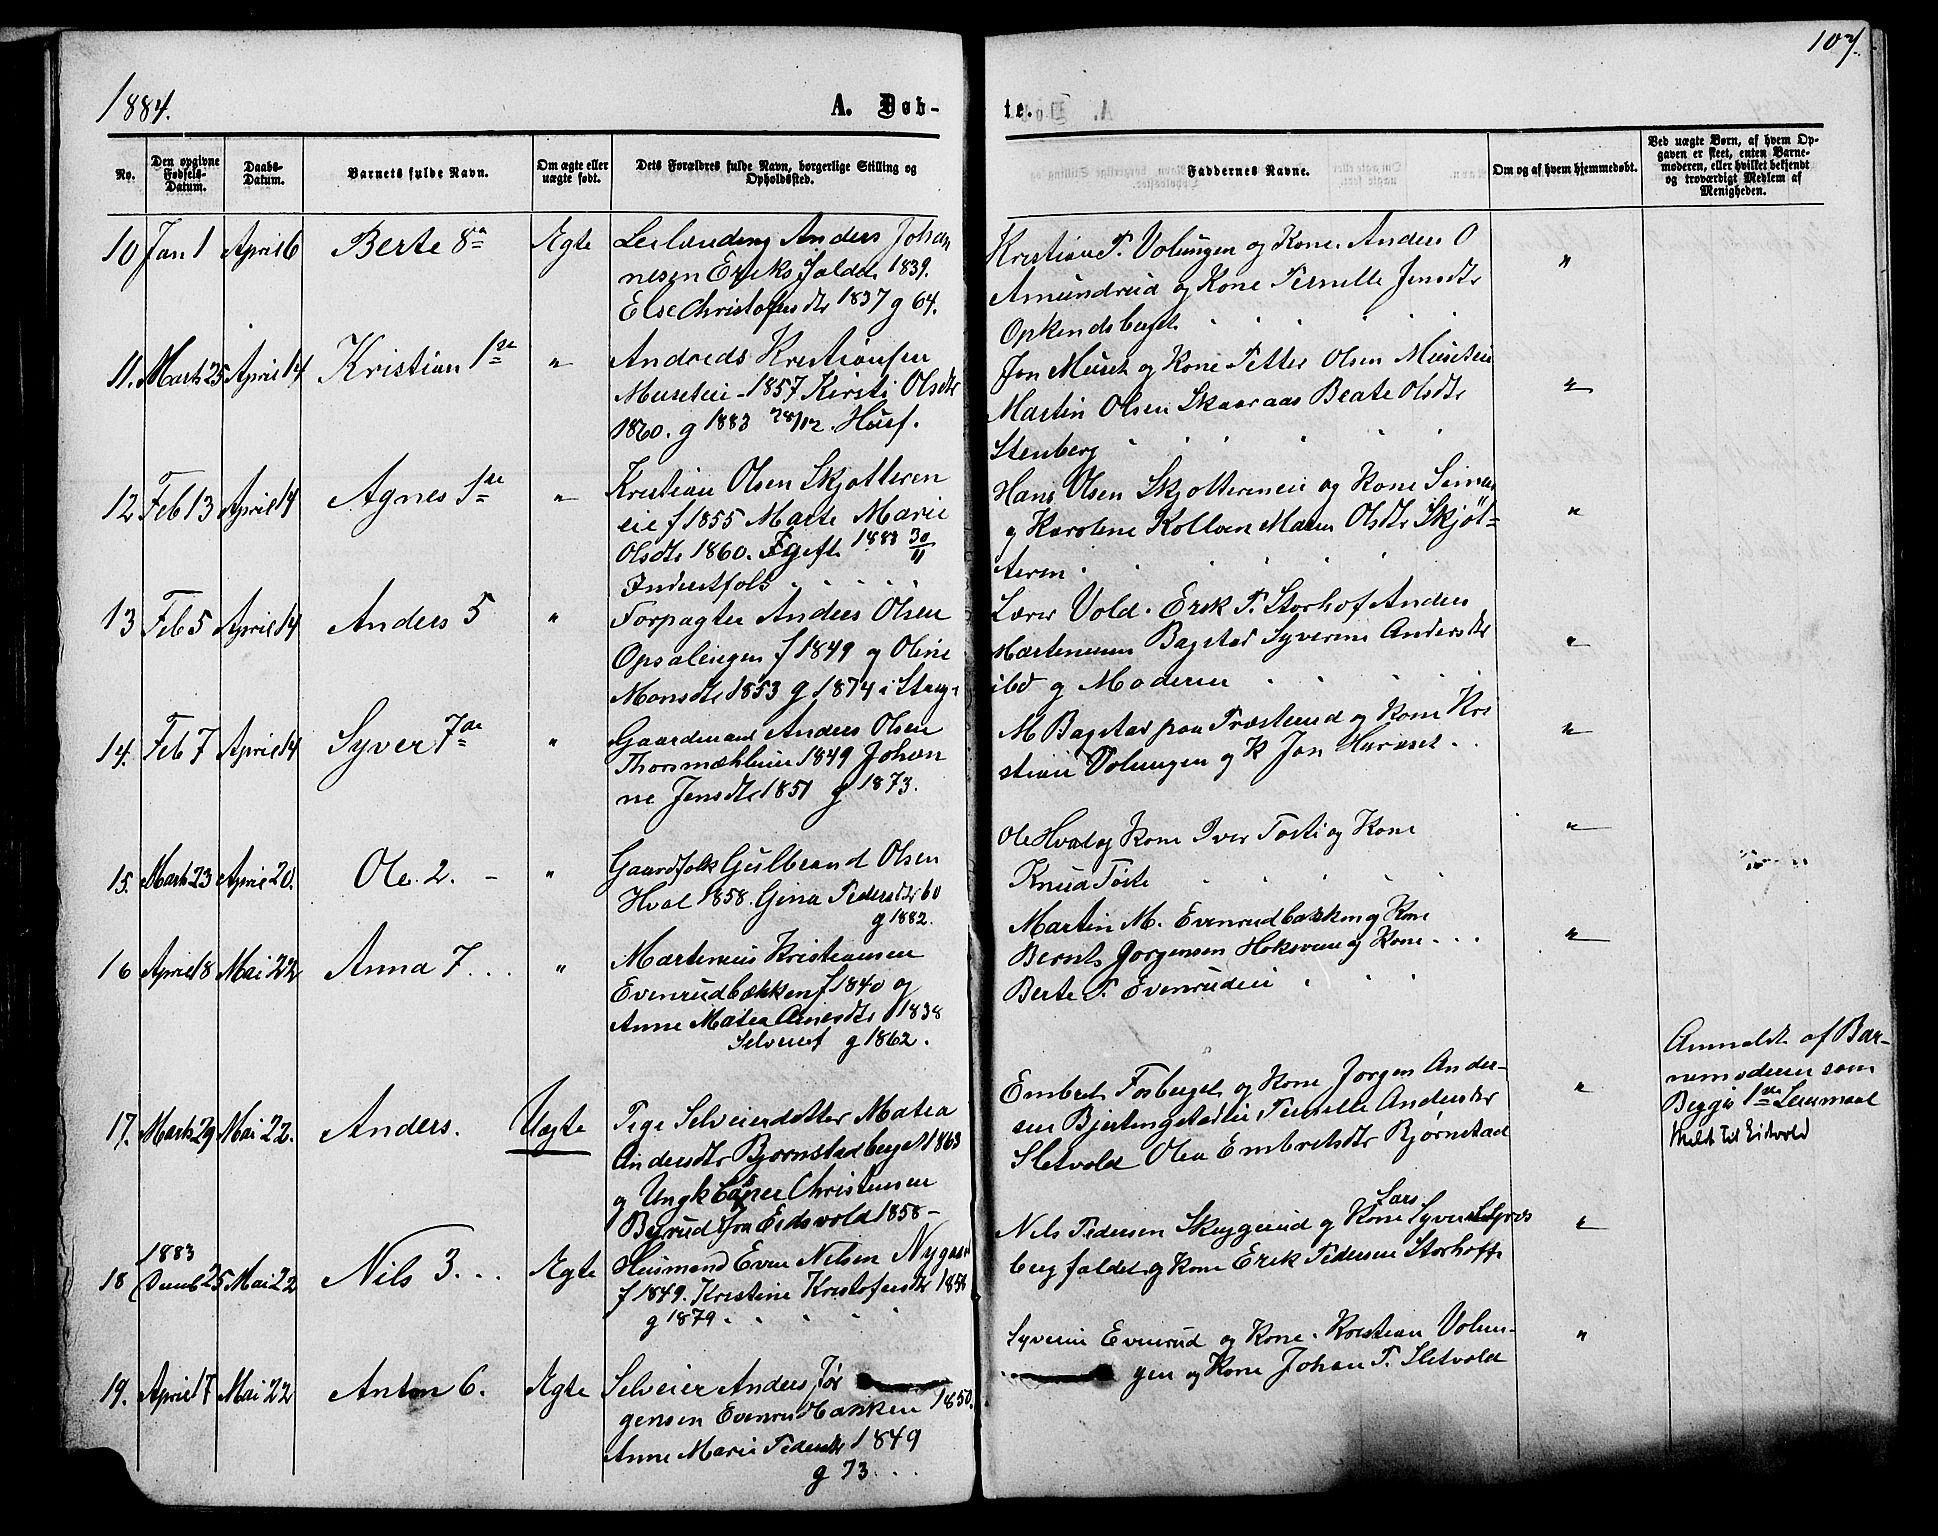 107.
1884.
A. Døb-
te.
No.
Den opgivne Fødsels-Datum.
Daabs-Datum.
Barnets fulde Navn.
Om ægte eller uægte født.
Dets Forældres fulde Navn, borgerlige Stilling og Opholdssted.
Faddernes Navne.
Om og af hvem hjemmedøbt.
Ved uægte Børn, af hvem Opgaven er skeet, enten Barnemoderen, eller hvilket bekjendt og troværdigt Medlem af Menigheden.
10 Jan 1 April 6 Berte 8de Ægte Leilænding Anders Johan
nesen Eriksfaldet 1839.
Else Christofersdtr 1837 g 64.
Kristian P. Volungen og Kone. Anders O
Amundrud og Kone Pernille Jensdtr
Opkendsberget
"
11. Marts 25 April 14 Kristian 1ste " Andreas Kristiansen
Museteie - 1857 Kirsti Olsdtr
1860. g 1883 28/12. Husf.
Jon Muset og Kone Petter Olsen Museteie
Martin Olsen Skaaraas Beate Olsdtr
Stenberg
"
12 Feb 13 April 14 Agnes 1ste " Kristian Olsen Skjotteren
eie f 1855 Marte Marie
Olsdtr 1860. gift 1883 30/11
Inderstfolk
Hans Olsen Skjottereneie og Kone
g Karoline Kolloen Maren Olsdtr Skjøt=
teren.
"
13 Feb 5 April 14 Anders 5 " Forpagter Anders Olsen
Opsalengen f 1849 og Oline
Monsdtr 1853 g 1874 i Stange
Lærer Vold. Erik P. Storhof Anders
Martinusen Bagstad Syverine Andersdtr
ibd og Moderen
"
14. Feb 7 April 14 Syver 7de " Gaardmand Anders Olsen
Thorsmæhleie 1849 Johan
ne Jensdtr 1851 g 1873.
M Bagstad paa Træsterud og Kone Kri
stian Volungen og K Jon Haraset
"
15. Marts 23 April 20. Ole. 2. - " Gaardfolk Gulbrand Olsen
Hval 1858. Gina Pedersdtr 60
g 1882.
Ole Hval og Kone Iver Toste og Kone
Knud Toste
"
16 April 8 Mai 22 Anna 7 " Martinius Kristiansen
Evenrudbækken f 1840 og
Anne Matea Arnesdtr 1838
Selveierf g 1862.
Martin M. Evenrudbækken og Kone
Bernts Jorgensen Hoksveen og Kone
Berte P. Evenrudeie
"
17. Marts 29 Mai 22. Anders. Uægte Pige Selveierdotter Matea
Andersdtr Bjornstadberget 1863
og Ungk Casper Christensen
Byrud fra Eidsvold 1858 -
Embret Fosberget og Kone Jorgen Ander-
sen Bjertingstadeie Pernille Andersdtr
Sletvold Olea Embretsdtr Bjørnstad
"
Anmeldt af Bar-
nemoderen som
Begges 1ste Leiermaal
Meldt til Eidsvold
18 1883 Decemb 25 Mai 22 Nils 3. Ægte Husmand Even Nilsen Nygaard
f 1849. Kristine Kristofersdtr 1858
g 1879.
Nils Pedersen Skyggerud og Kone Lars Syversen
berg faldet og Kone Erik Pedersen Storhoff
"
19. April 7 Mai 22 Anton 6. Ægte Selveier Anders Jør
gensen Evenrudbækken 1850.
Anne Marie Pedersdtr 1849
g 73.
Syverin Evenrud og Kone. Kristian Volun-
gen og Kone Johan P. Sletvold
"